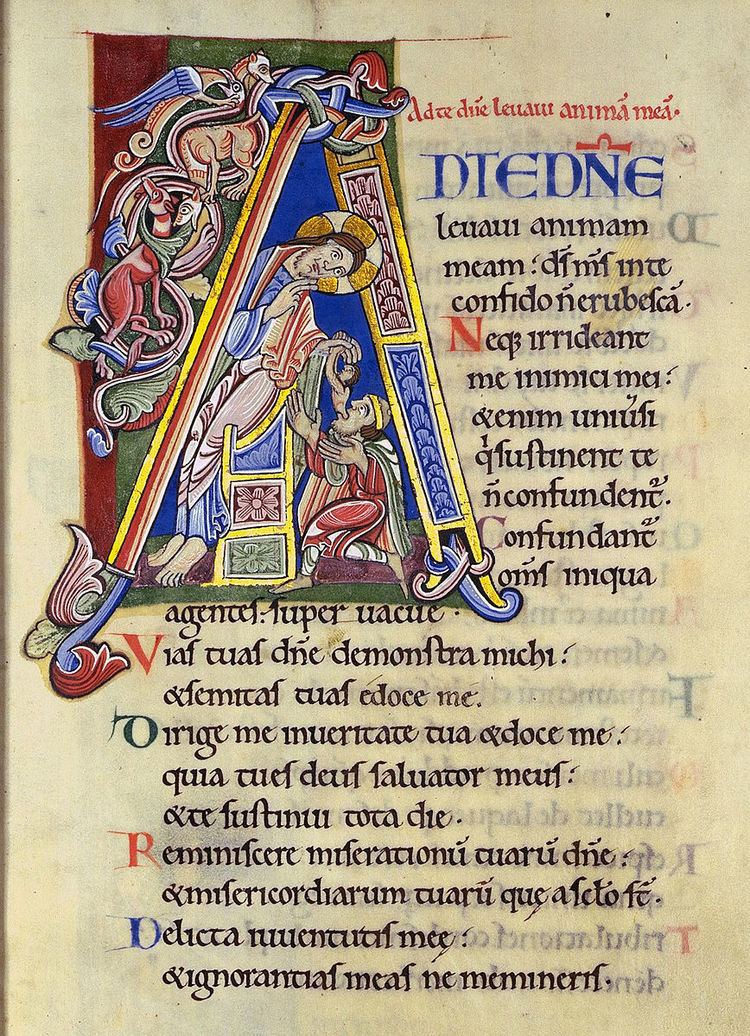 Ad te dn̄e levavi animā meā.
AD TE DN̄E
levavi animam
meam: ds̄ ms̄ in te
confido n̄ erubescā.
Neq; irrideant
me inimici mei:
&enim univ̄si
q̍ sustinent te
n̄ confundent᷑.
Confundant᷑
om̄s iniqua
agentes: super vacue.
Vias tuas dn̄e demonstra michi:
&semitas tuas edoce me.
Dirige me inveritate tua &doce me:
quia tu es deus salvator meus:
&te sustinui tota die.
Reminiscere miserationū tuarū dn̄e:
&misericordiarum tuarū quę a sc̄lo st̄.
Delicta iuventutis meę:
&ignorantias meas ne memineris.